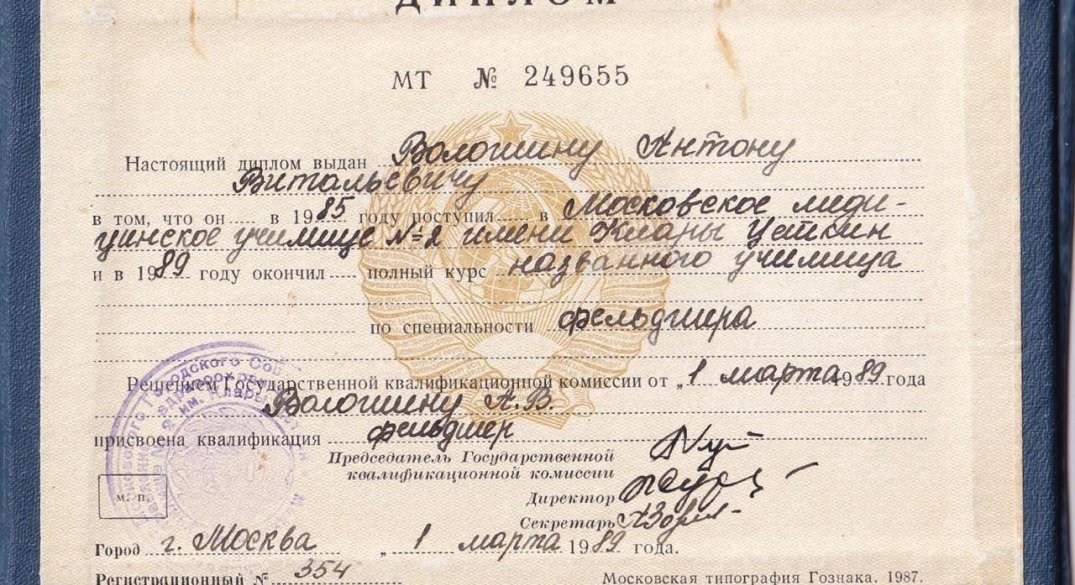 ДИПЛОМ
МТ № 249655
Настоящий диплом выдан Волошину Антону
Витальевичу
в том, что он в 1985 году поступил в Московское меди-
цинское училище №2 имени Клары Цеткин
и в 1989 году окончил полный курс названного училища
по специальности фельдшера
Решением Государственной квалификационной комиссии от „1 марта 1989 года
Волошину А.В.
присвоена квалификация фельдшер
Председатель Государственной
квалификационной комиссии
Директор
Секретарь
м. п.
Город г. Москва „ 1 марта 1989 года.
Регистрационный № 354
Московская типография Гознака. 1987.